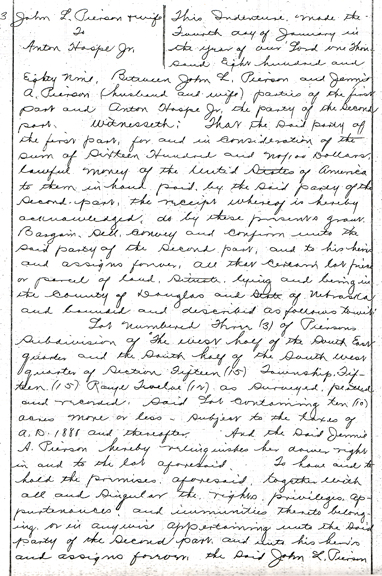 3 John L. Pierson & wife
To
Anton Hospe Jr.
This Indenture, made the
Fourth day of January in
the year of our Lord one Thou-
sand Eight hundred and
Eighty Nine, Between John L. Pierson and Jennie
A. Pierson (husband and wife) parties of the first
part and Anton Hospe Jr. the party of the second
part. Witnesseth: That the said party of
the first part, for and in consideration of the
sum of Sixteen Hundred and No/100 Dollars,
lawful money of the United States of America
to them in hand paid, by the said party of the
Second part, the receipt whereof is hereby
acknowledged; do by these presents grant,
Bargain, Sell, Convey and Confirm unto the
said party of the Second part, and to his heirs
and assigns forever, all that certain lot piece
or parcel of land, Situate, lying and being in
the County of Douglas and State of Nebraska
and bounded and described as follows towit:
Lot Numbered Three (3) of Piersons
Subdivision of The West half of the South East
quarter and the South half of the South West
quarter of Section Fifteen (15) Township Fif-
teen (15) Range Twelve (12) as Surveyed, platted
and recorded. Said Lot Containing ten (10)
acres more or less. Subject to the taxes of
A.D. 1888 and thereafter. And the said Jennie
A. Pierson hereby relinquishes her dower right
in and to the lot aforesaid. To have and to
hold the premises aforesaid, together with
all and Singular the rights, privileges, ap-
purtenances, and immunities thereto belong-
ing, or in anywise appertaining unto the said
party of the Second part, and unto his heirs
and assigns forever. the said John L. Pierson